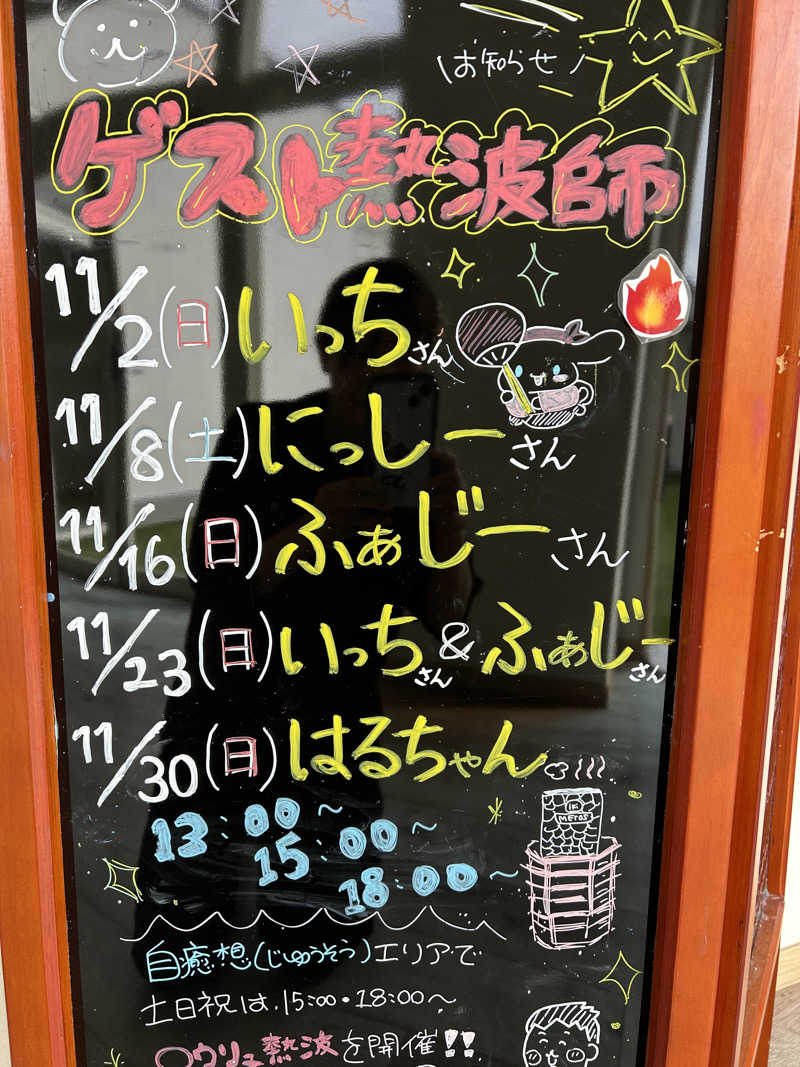 お知らせ
ゲスト熱波師
11/2(日)いっちさん
11/8(土)にっしーさん
11/16(日)ふぁじーさん
11/23(日)いっちさん&ふぁじーさん
11/30(日)はるちゃん
13:00~
15:00~
18:00~
iki
METOS
自癒想(じゆうそう)エリアで
土日祝は、15:00・18:00~
ロウリュ熱波を開催!!